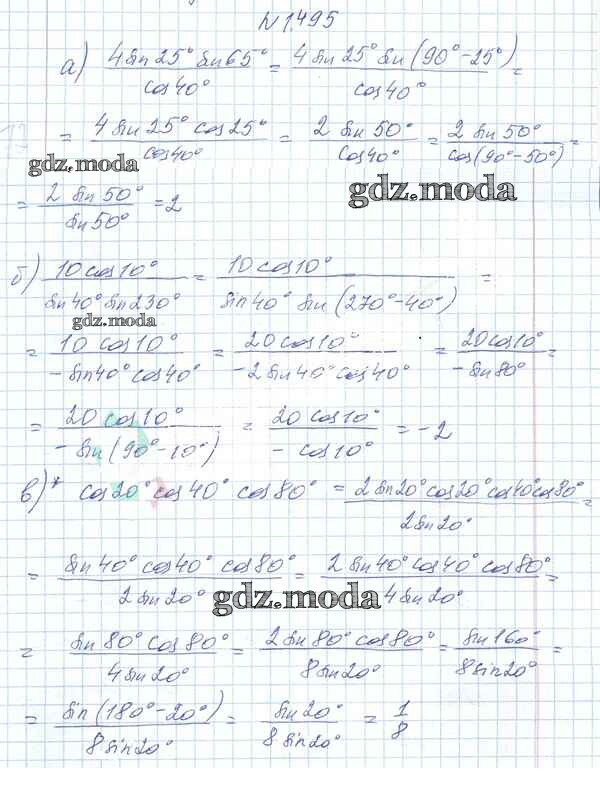 № 1.495
а) 4 sin 25° sin 65° / cos 40° = 4 sin 25° sin (90° - 25°) / cos 40° =
= 4 sin 25° cos 25° / cos 40° = 2 sin 50° / cos 40° = 2 sin 50° / cos (90° - 50°) =
gdz.moda
gdz.moda
= 2 sin 50° / sin 50° = 2
б) 10 cos 10° / sin 40° sin 230° = 10 cos 10° / sin 40° sin (270° - 40°) =
gdz.moda
= 10 cos 10° / - sin 40° cos 40° = 20 cos 10° / - 2 sin 40° cos 40° = 20 cos 10° / - sin 80° =
= 20 cos 10° / - sin (90° - 10°) = 20 cos 10° / - cos 10° = - 2
в)* cos 20° cos 40° cos 80° = 2 sin 20° cos 20° cos 40° cos 80° / 2 sin 20° =
= sin 40° cos 40° cos 80° / 2 sin 20° = 2 sin 40° cos 40° cos 80° / 4 sin 20° =
gdz.moda
= sin 80° cos 80° / 4 sin 20° = 2 sin 80° cos 80° / 8 sin 20° = sin 160° / 8 sin 20° =
= sin (180° - 20°) / 8 sin 20° = sin 20° / 8 sin 20° = 1 / 8